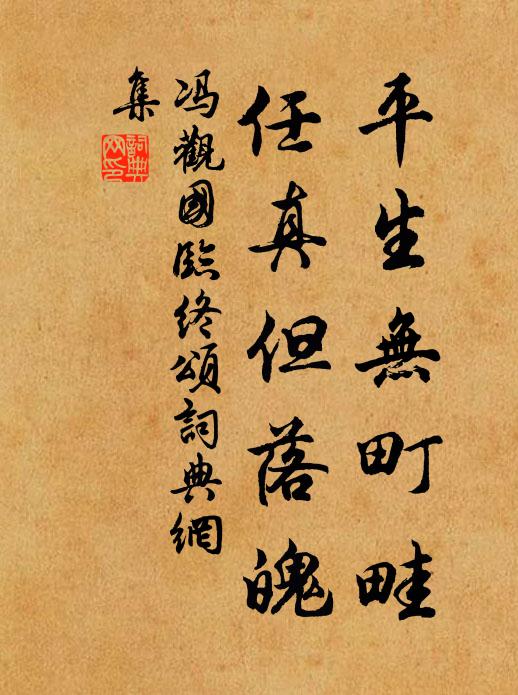 平生無町畦
任真但落魄
冯觀國臨终頌詞典網
集
詞典
网印